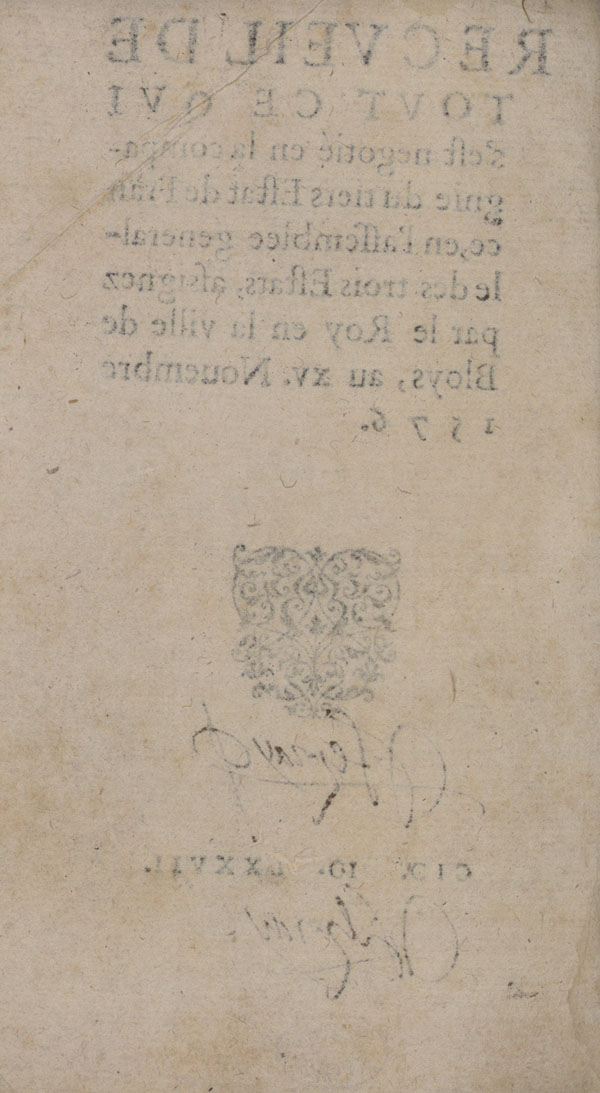 RECVEIL DE
TOVT CE QVI
s'eſt negotié en la compa-
gnie du tiers Eſtat de Fran
ce, en l'aſſemblee general-
le des trois Eſtats, aſsignez
par le Roy en la ville de
Bloys, au xv. Nouembre
1576.
CIↃ. IↃ. LXXVII.